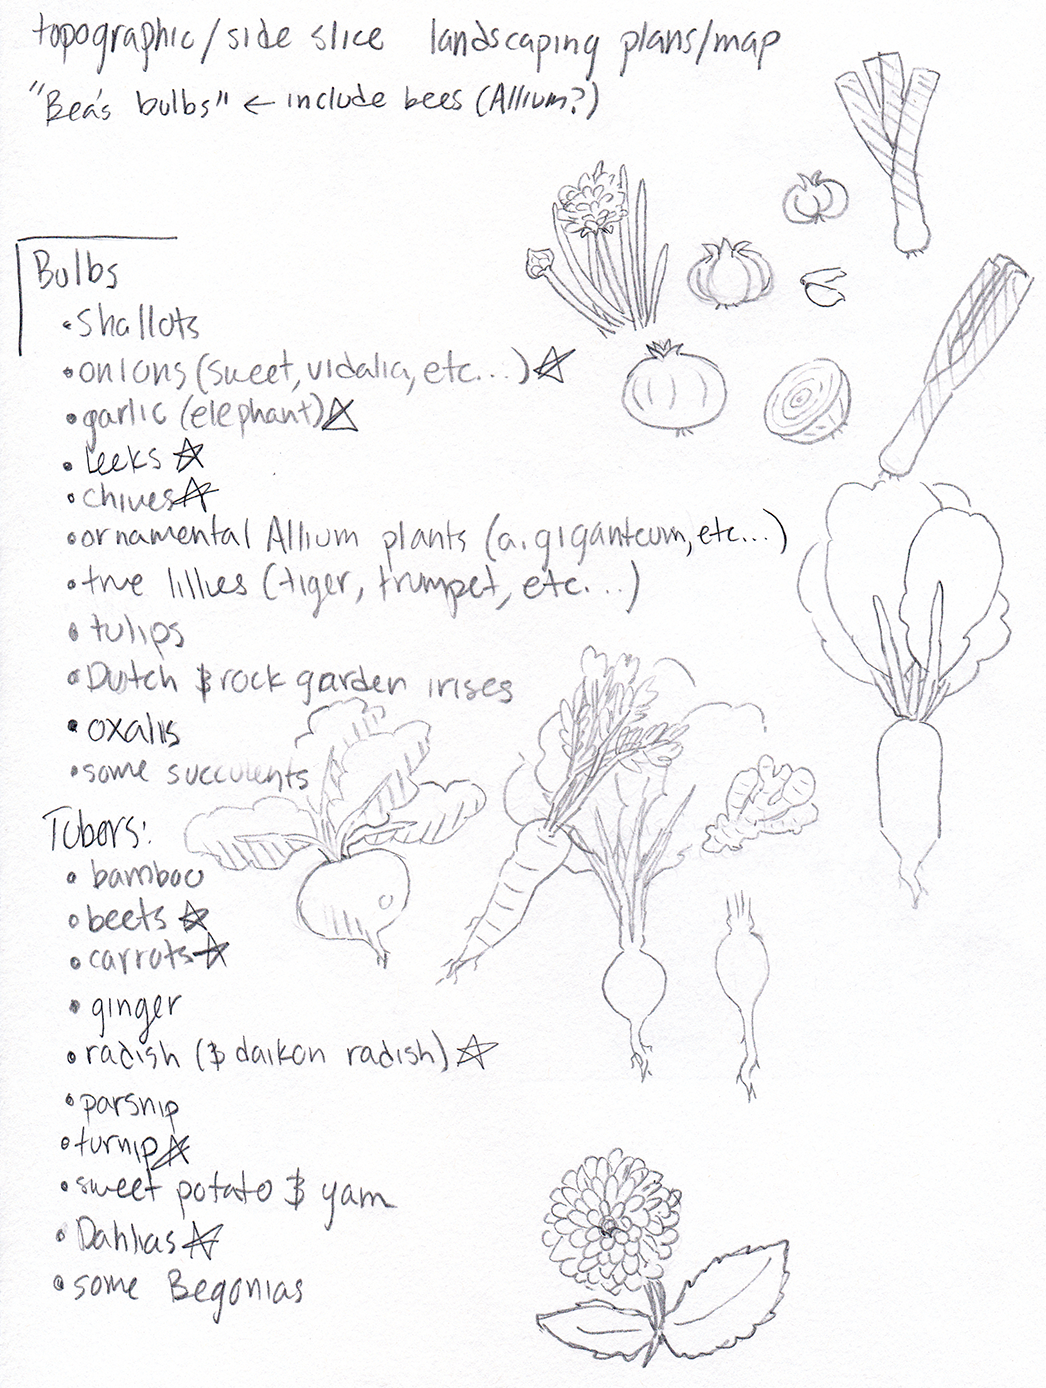 topographic/side slice landscaping plans/map
"Bea's bulbs" ← include bees (Allium?)
Bulbs
• Shallots
• onions (sweet, vidalia, etc...) ☆
• garlic (elephant) ☆
• leeks ☆
• chives ☆
• ornamental Allium plants (a. giganteum, etc...)
• true lillies (tiger, trumpet, etc...)
• tulips
• Dutch & rock garden irises
• oxalis
• some succulents
Tubers:
• bamboo
• beets ☆
• carrots ☆
• ginger
• radish (& daikon radish) ☆
• parsnip
• turnip ☆
• sweet potato & yam
• Dahlias ☆
• some Begonias